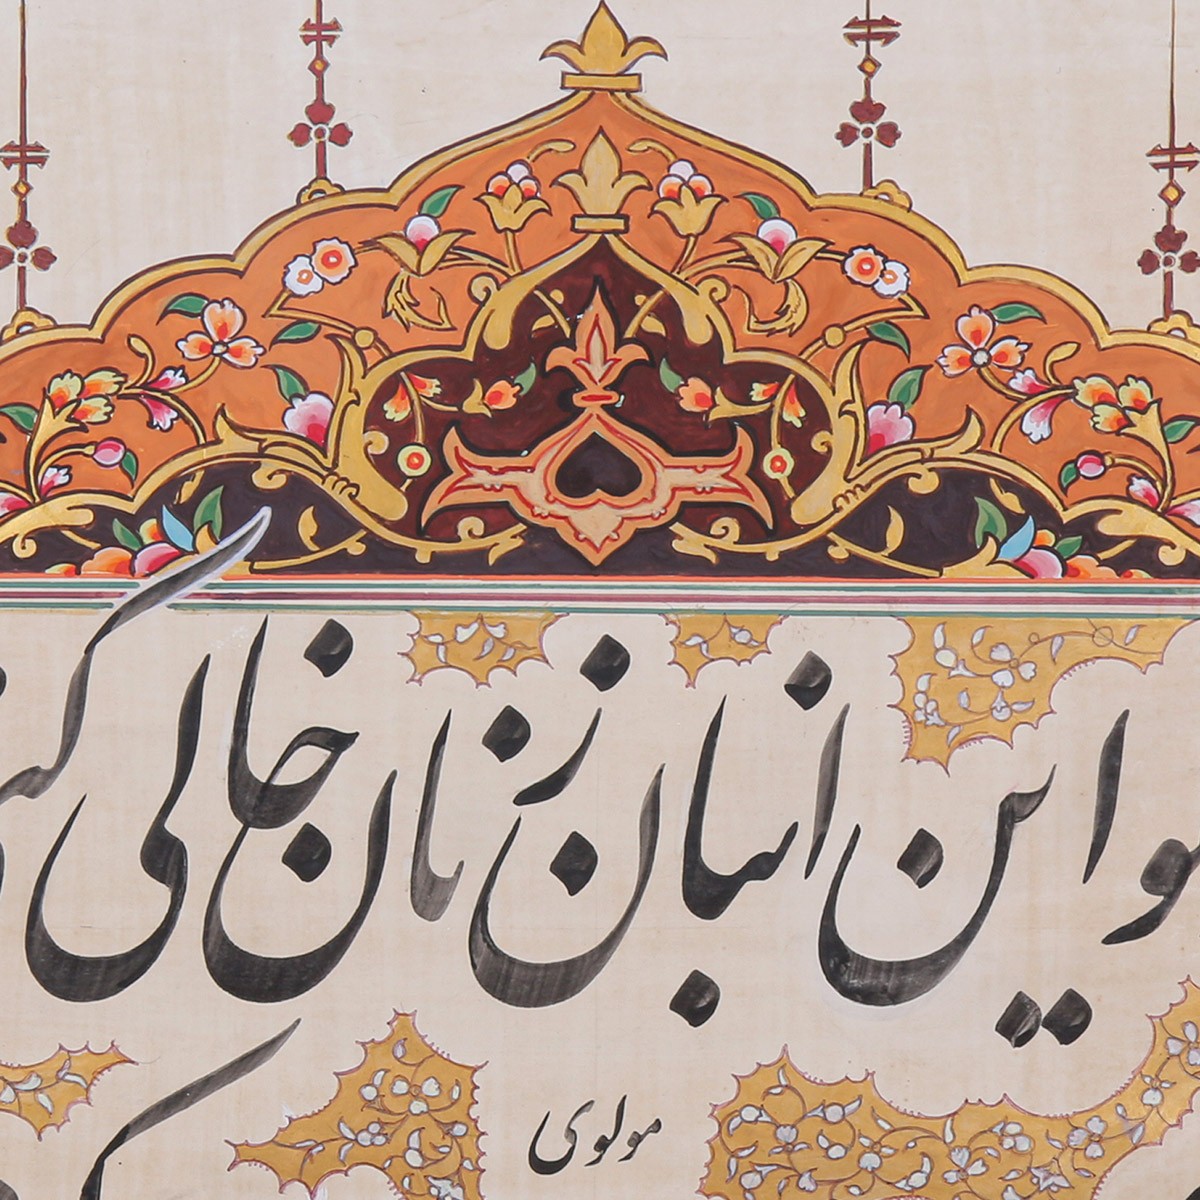 این انبان ز نان خالی
مولوی